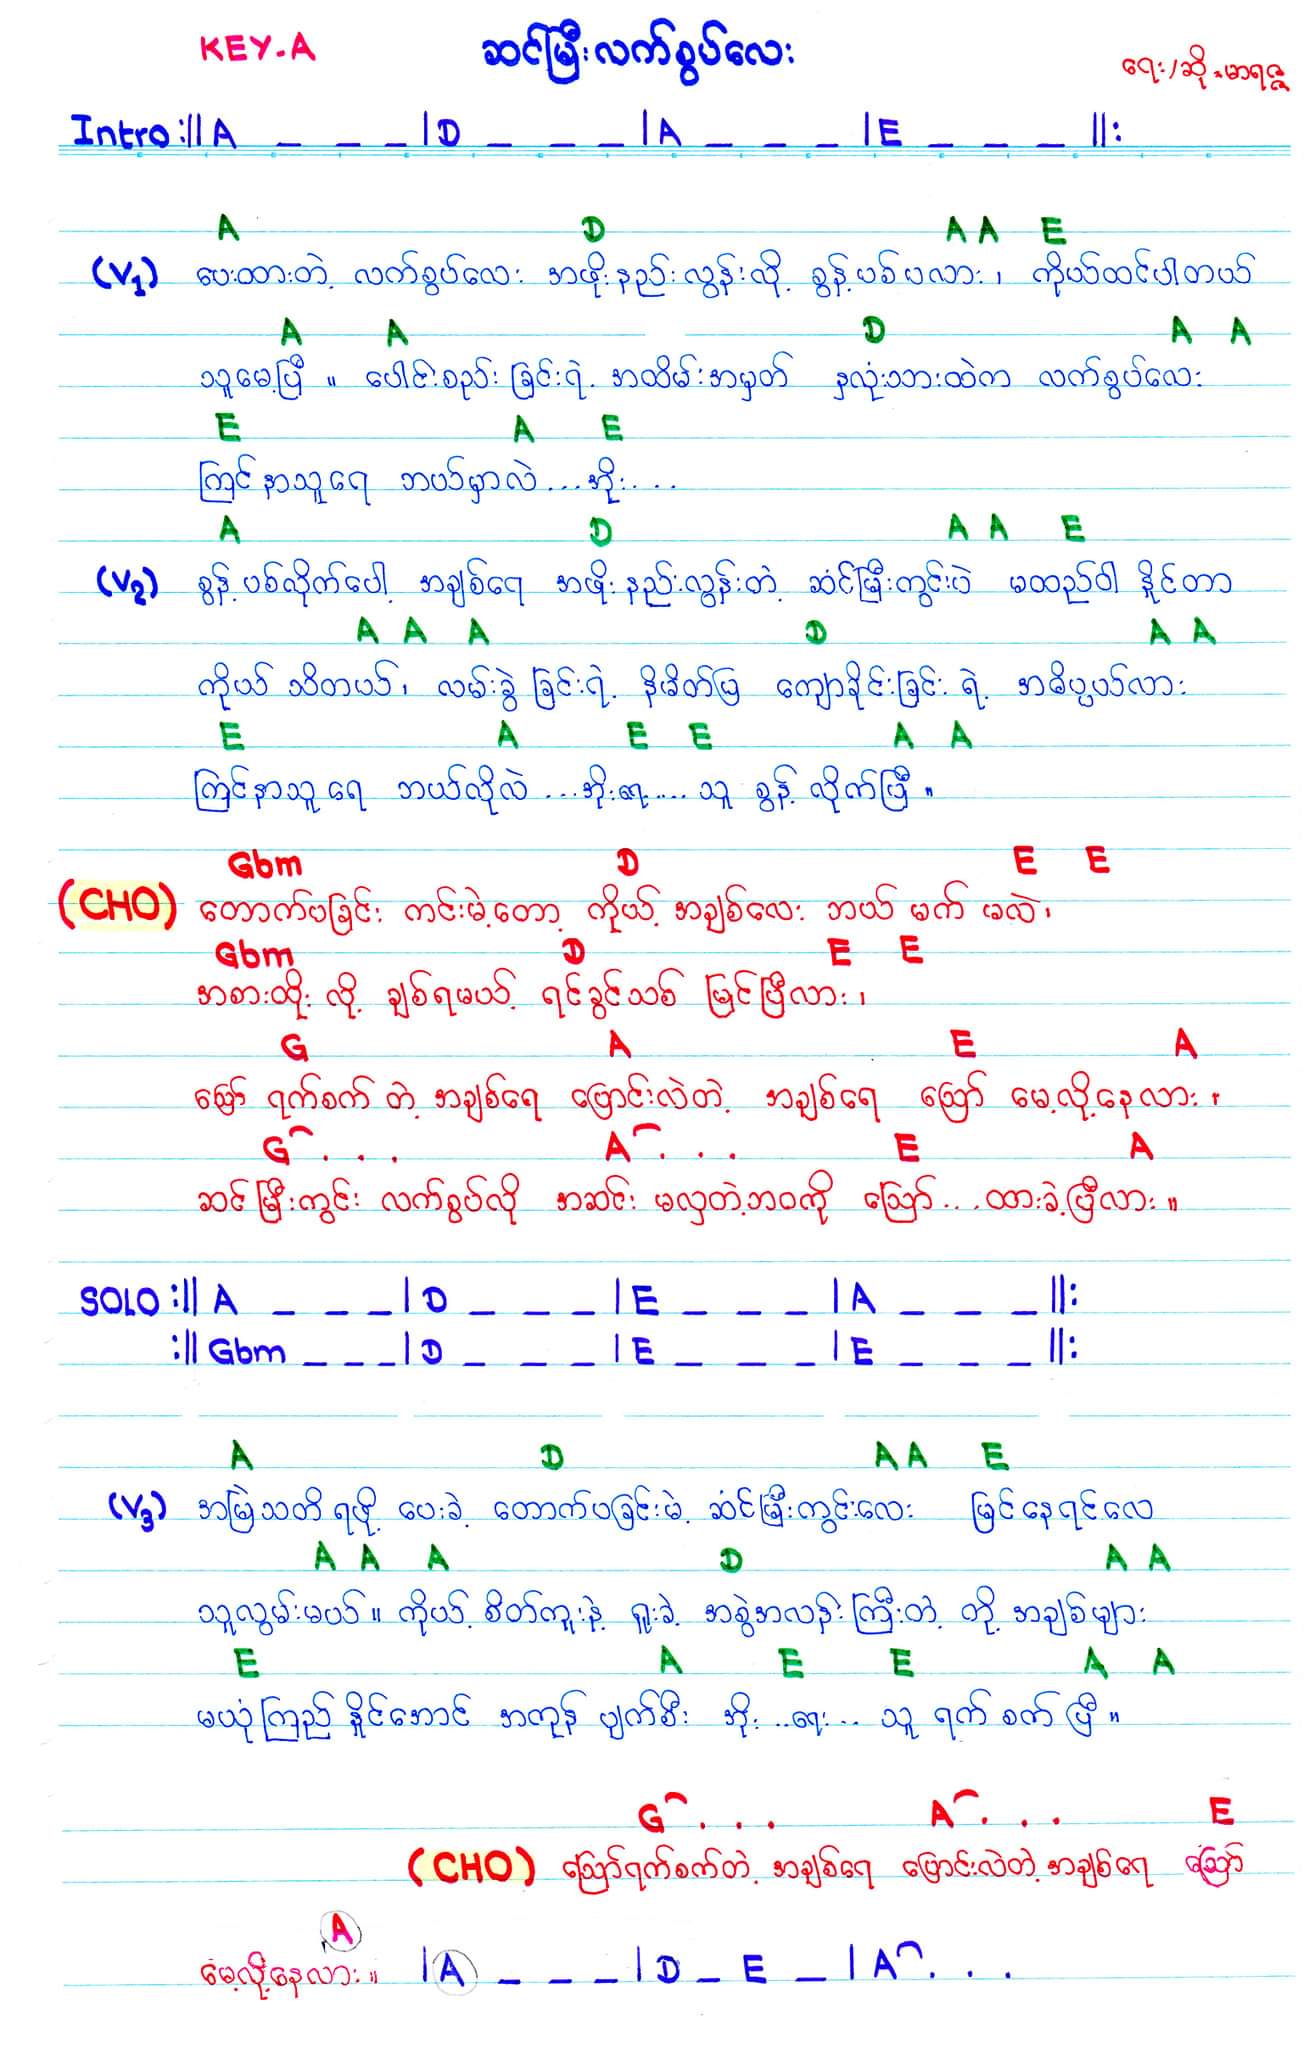 KEY-A ဆင်မြီးလက်စွပ်လေး ရေး/ဆို-မာရဇ္ဇ
Intro :|| A _ _ _ | D _ _ _ | A _ _ _ | E _ _ _ ||:
A D A A E
(V1) ပေးထားတဲ့ လက်စွပ်လေး အဖိုးနည်းလွန်းလို့ စွန့်ပစ်မလား၊ ကိုယ်ထင်ပါတယ်
A A D A A
သူမေ့ပြီ ။ ပေါင်းစည်းခြင်းရဲ့ အထိမ်းအမှတ် နှလုံးသားထဲက လက်စွပ်လေး
E A E
ကြင်နာသူရေ ဘယ်မှာလဲ ... အိုး....
A D A A E
(V2) စွန့်ပစ်လိုက်ပေါ့ အချစ်ရေ အဖိုးနည်းလွန်းတဲ့ ဆံင်မြီးကွင်းပဲ မထည်ဝါ နှိုင်တာ
A A A D A A
ကိုယ် သိတယ်၊ လမ်းခွဲခြင်းရဲ့ နိမိတ်ပြ ကျောခိုင်းခြင်းရဲ့ အဓိပ္ပယ်လား
E A E E A A
ကြင်နာသူရေ ဘယ်လိုလဲ ...အိုးရေး.... သူ စွန့်လိုက်ပြီ ။
Gbm D E E
(CHO) တောက်ပခြင်း ကင်းမဲ့တော့ ကိုယ့်အချစ်လေး ဘယ် မက် မလဲ၊
Gbm D E E
အစားထိုး လို့ ချစ်ရမယ့် ရင်ခွင်သစ် မြင်ပြီလား ၊
G A E A
သြော် ရက်စက်တဲ့ အချစ်ရေ ပြောင်းလဲတဲ့ အချစ်ရေ သြော် မေ့လို့နေလား ။
G . . . A . . . E A
ဆင်မြီးကွင်း လက်စွပ်လို အဆင်း မလှတဲ့ဘဝကို သြော် ... ထားခဲ့ပြီလား ။
SOLO :|| A _ _ _ | D _ _ _ | E _ _ _ | A _ _ _ ||:
:|| Gbm _ _ _ | D _ _ _ | E _ _ _ | E _ _ _ ||:
A D A A E
(V3) အမြဲသတိရဖို့ ပေးခဲ့ တောက်ပခြင်းမဲ့ ဆံင်မြီးကွင်းလေး မြင်နေရင်လေ
A A A D A A
သူလွမ်းမယ် ။ ကိုယ့် စိတ်ကူးနဲ့ ရူးခဲ့ အစွဲအလန်းကြီးတဲ့ တို့ အချစ်များ
E A E E A A
မယုံကြည်နှိုင်အောင် အကုန် ပျက်စီး အိုး ..ရေး.. သူ ရက်စက်ပြီ ။
G . . . A . . . E
(CHO) သြော်ရက်စက်တဲ့ အချစ်ရေ ပြောင်းလဲတဲ့ အချစ်ရေ သြော်
A
မေ့လို့နေလား ။ | A _ _ _ | D _ E _ | A . . .